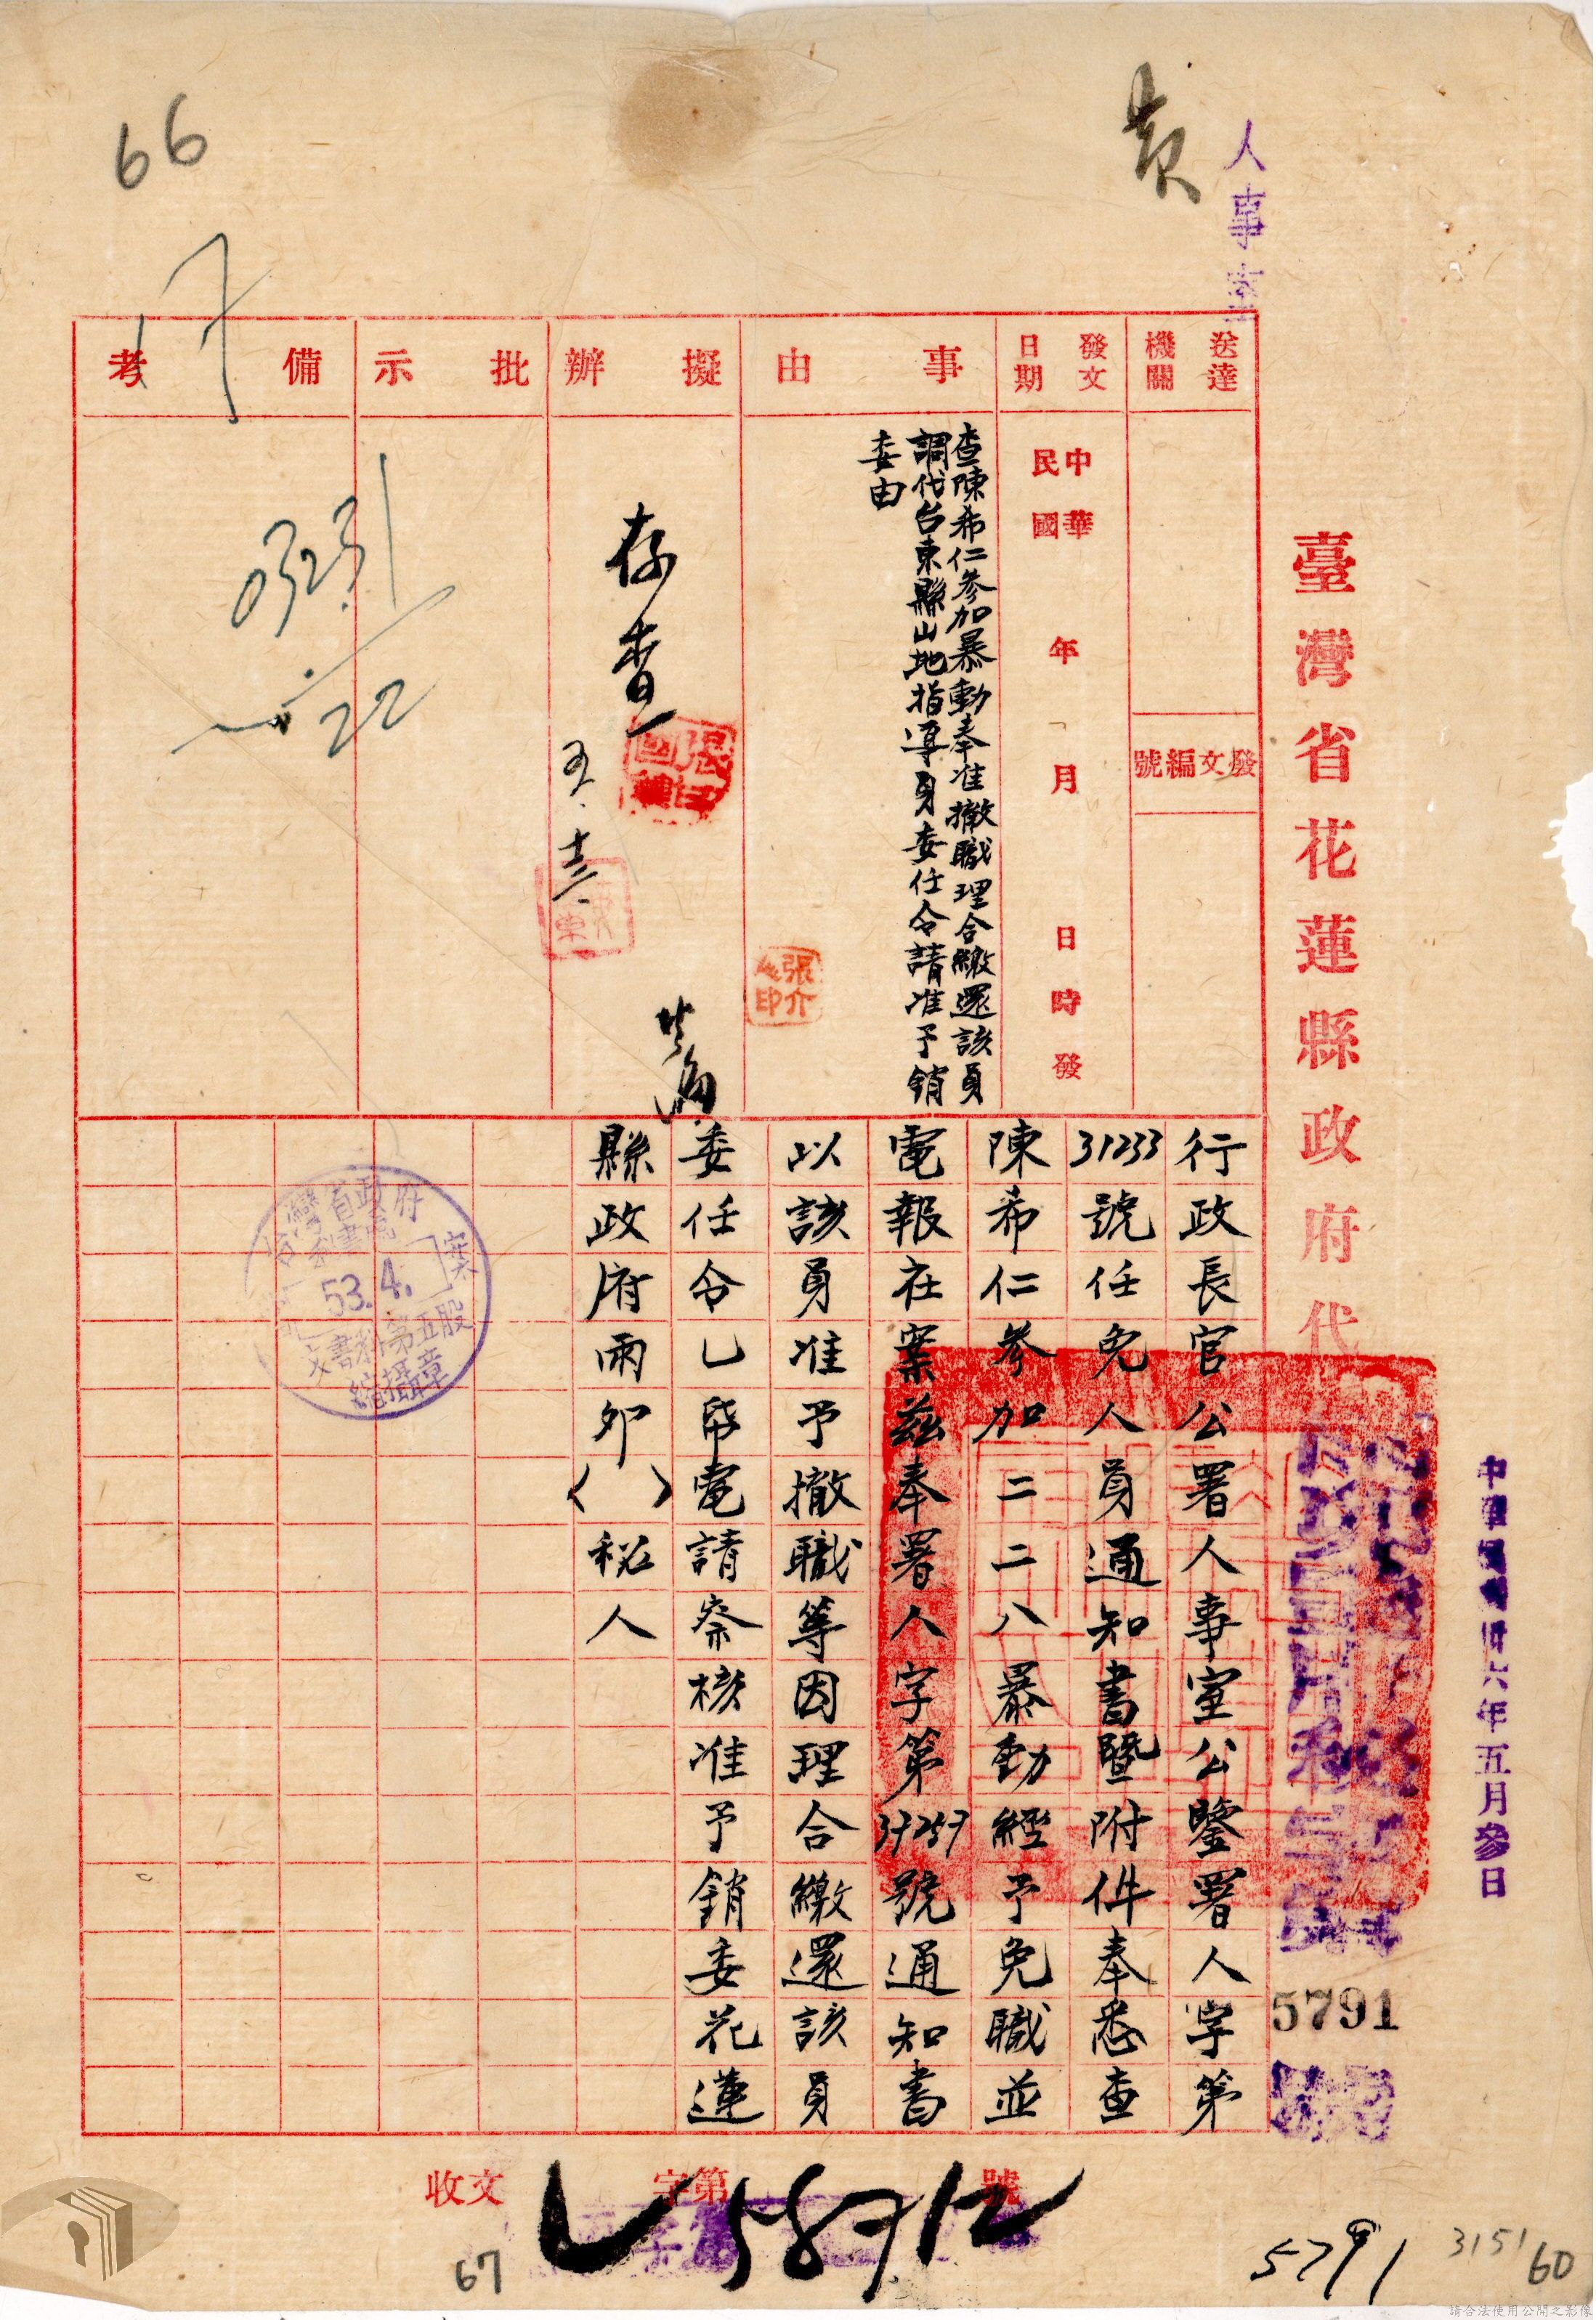 人事室
臺灣省花蓮縣政府代
中華民國卅六年五月參日
5791
號
送達機關
發文編號
發文日期
中華民國 年 月 日 時發
事由
查陳希仁參加暴動奉准撤職理合繳還該員
調代台東縣山地指導員委任令請准予銷
委由
擬辦
存查
五.十三
批示
備考
66
行政長官公署人事室公鑒署人字第
31233號任免人員通知書暨附件奉悉查
陳希仁參加二二八暴動經予免職並
電報在案茲奉署人字第37257號通知書
以該員准予撤職等因理合繳還該員
委任令乙帋電請察核准予銷委花蓮
縣政府兩卯( )秘人
台灣省政府
53.4.
文書科第五股
縮攝章
張介
印
收文 字第 號
58712
67
5791
3151
60
請合法使用公開之影像